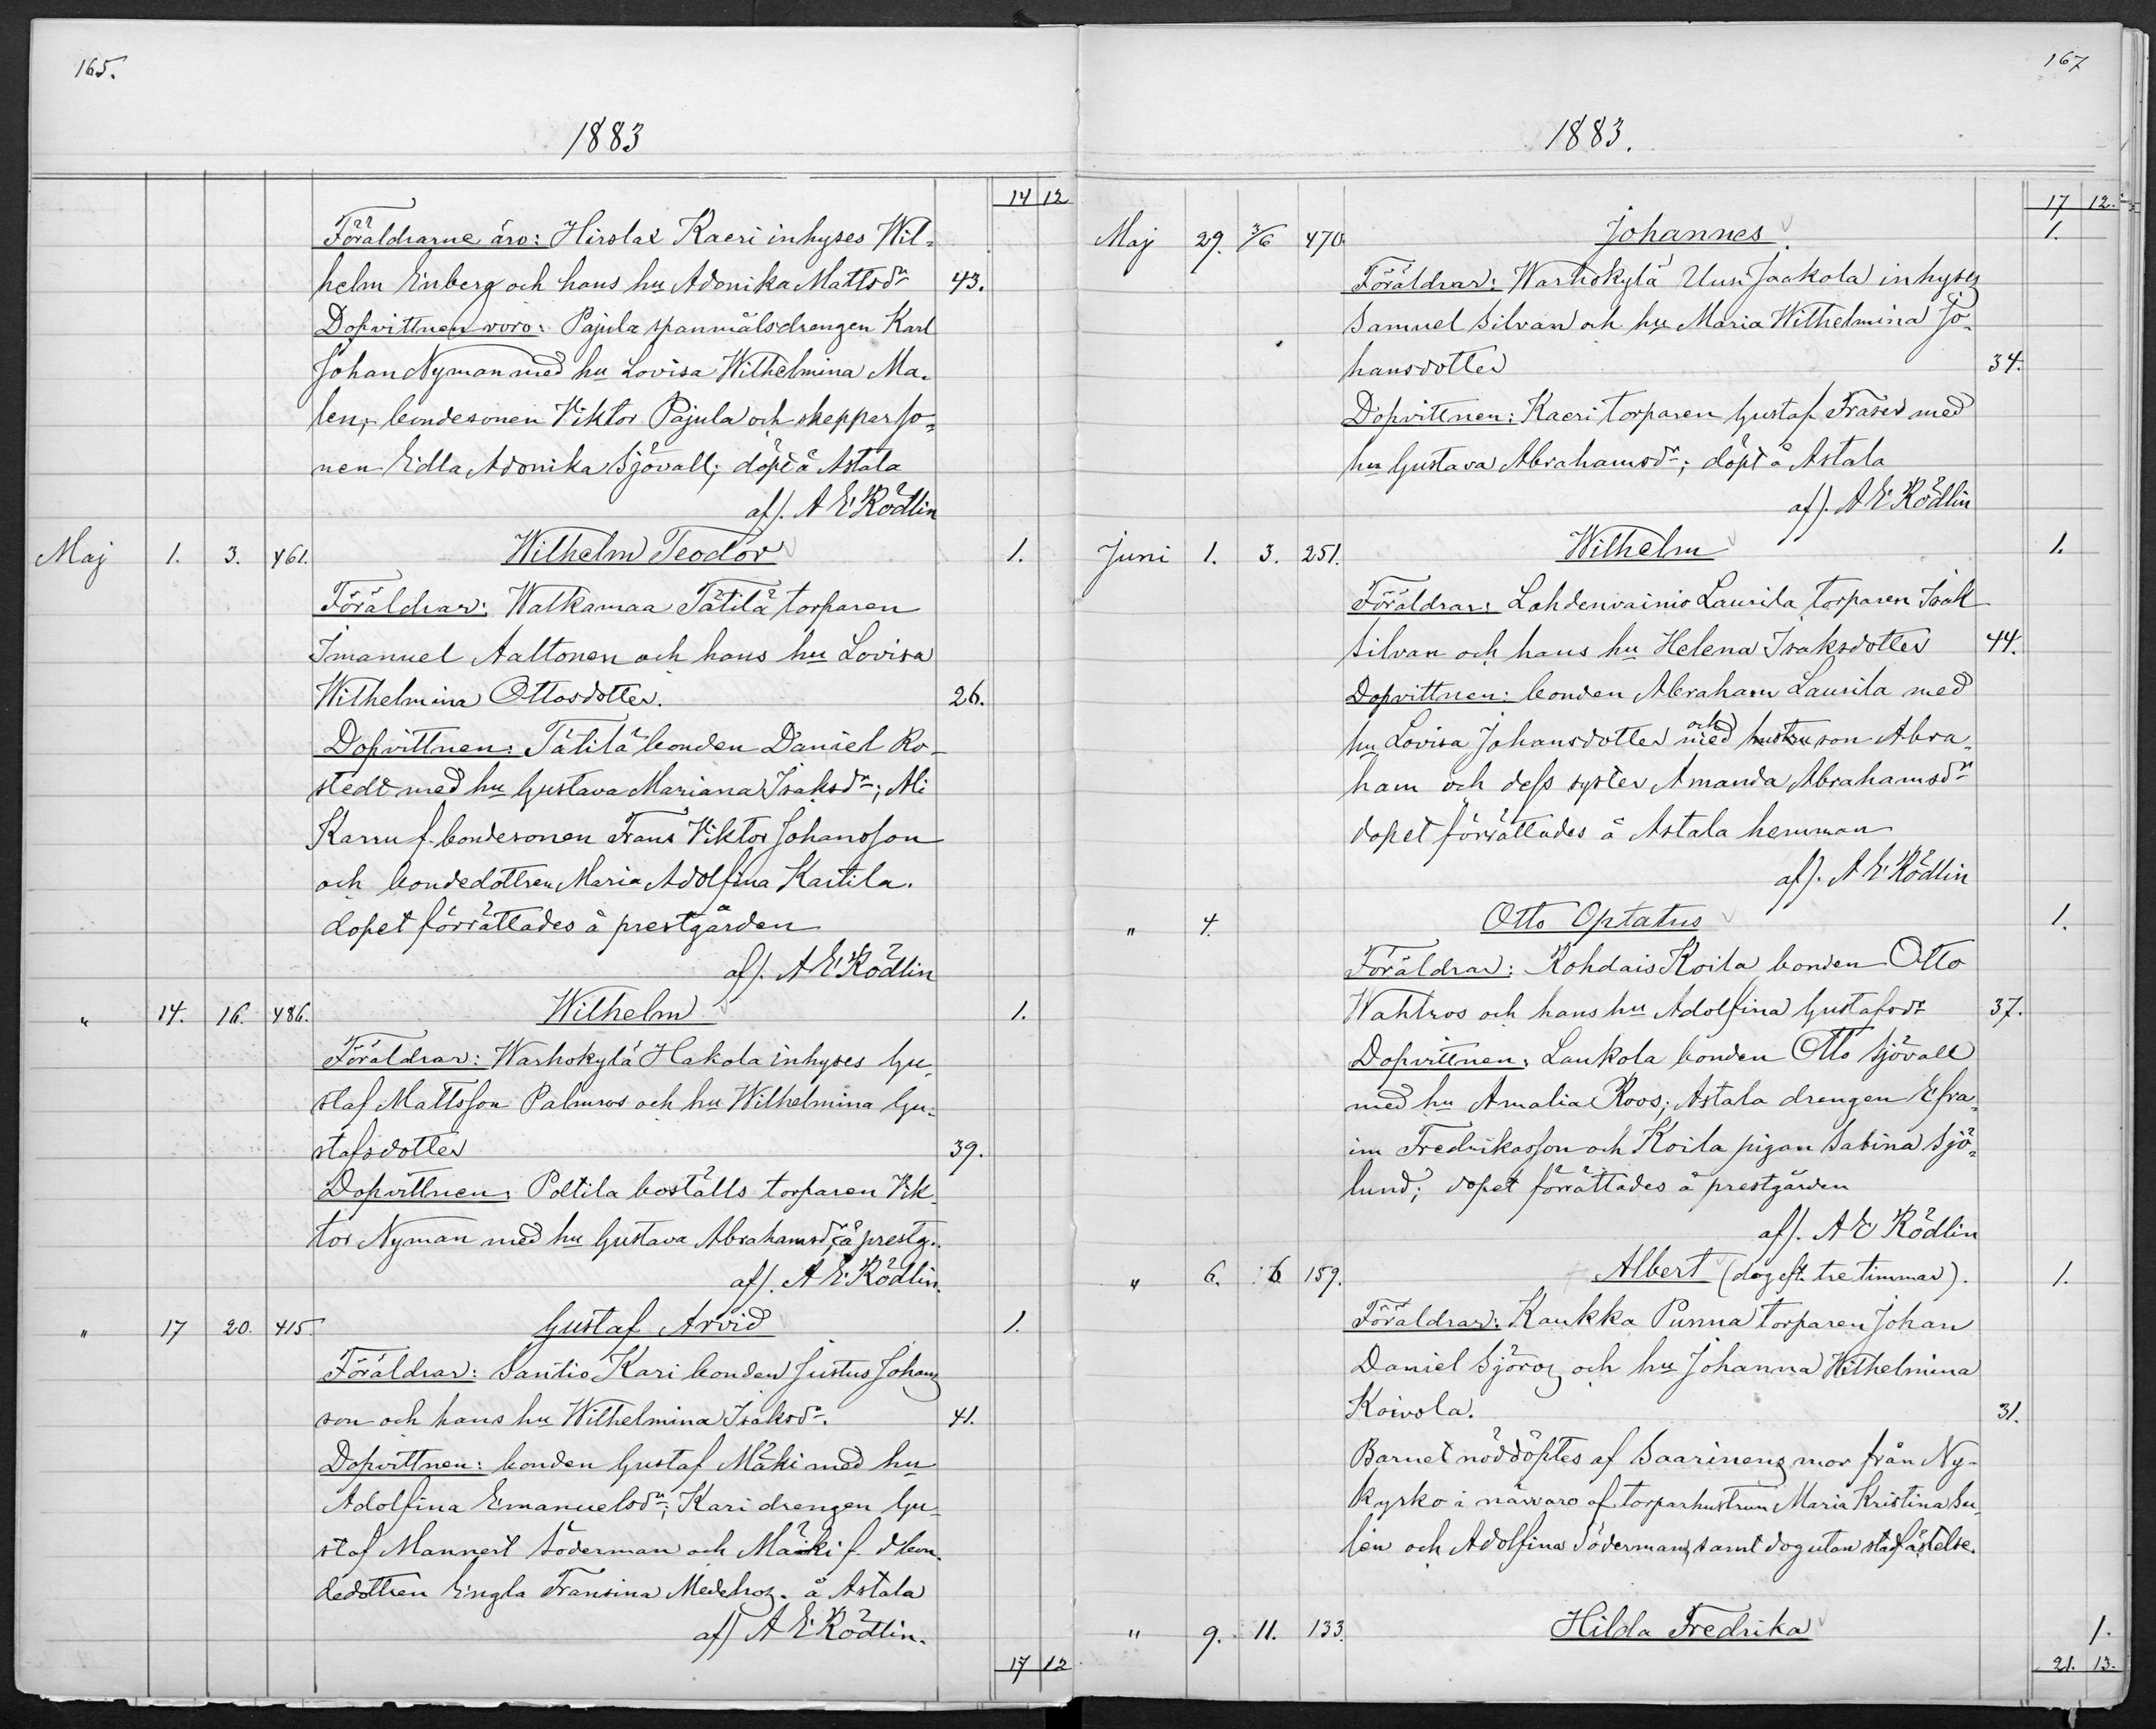 165.
1883
14 12
Föräldrarne äro: Hirslax Kaeri inhyses Wil-
helm Enberg och hans hu Adonika Mattsdr 43.
Dopvittnen voro: Pajula spanmålsdrengen Karl
Johan Nyman med hu Lovisa Wilhelmina Ma-
len, bondesonen Viktor Pajula och skepparjo-
nen Edla Adonika Sjövall; döpt å Astala
af). A E Rödlin
Maj 1. 3. 461. Wilhelm Teodor 1.
Föräldrar: Watkamaa Tätilä torparen
Imanuel Aaltonen och hans hu Lovisa
Wilhelmina Ottosdotter. 26.
Dopvittnen: Tätilä bonden Daniel Ro-
stedt med hu Gustava Mariana Isaksdr; Ali
Karru f. bondesonen Frans Viktor Johansson
och bondedottren Maria Adolfina Kaitila.
dopet förrättades å prestgården
af). A E Rödlin
" 14. 16. 486. Wilhelm 1.
Föräldrar: Warhokylä Hakola inhyses Gu-
staf Mattsson Palmros och hu Wilhelmina Gu-
stafsdotter 39.
Dopvittnen: Poltila boställs torparen Vik-
tor Nyman med hu Gustava Abrahamsdr, å prestg.
af). A E Rödlin.
" 17 20. 415. Gustaf Arvid 1.
Föräldrar: Santio Kari bonden Justus Johans
son och hans hu Wilhelmina Isaksdr. 41.
Dopvittnen: bonden Gustaf Mäki med hu
Adolfina Emanuelsdr; Kari drengen Gu-
staf Mannert Söderman och Mäki f. d bon-
dedottren Engla Fransina . å Astala
af) A E Rödlin.
17 12
167
1883.
17 12.
Maj 29. 3/6 470. Johannes 1.
Föräldrar: Warhokylä Uusi Jaakola inhyses
Samuel Silvan och hu Maria Wilhelmina Jo-
hansdotter 34.
Dopvittnen: Kaeri torparen Gustaf Fraser med
hu Gustava Abrahamsdr; döpt å Astala
af). A E Rödlin
Juni 1. 3. 251. Wilhelm 1.
Föräldrar: Lahdenvainio Laurila torparen Isak
Silvan och hans hu Helena Isaksdotter 44.
Dopvittnen: bonden Abraham Laurila med
hu Lovisa Johansdotter och med hustru son Abra-
ham och dess syster Amanda Abrahamsdr
dopet förrättades å Astala hemman
af). A E Rödlin
" 4. Otto Optatus 1.
Föräldrar: Kohdais Koila bonden Otto
Wahlros och hans hu Adolfina Gustafsdr 37.
Dopvittnen: Laukola bonden Otto Sjövall
med hu Amalia Roos; Astala drengen Efra-
im Fredriksson och Koila pigan Sabina Sjö-
lund; dopet förrättades å prestgården
af). A E Rödlin
" 6. 6 159. Albert (dog eft. tre timmar). 1.
Föräldrar: Kaukka Punna torparen Johan
Daniel Sjöros och hu Johanna Wilhelmina
Koivola. 31.
Barnet nöddöptes af Saarinens mor från Ny-
kyrko i närvaro af torparhustrun Maria Kristina Su-
lén och Adolfina Söderman, samt dog utan stadfästelse.
" 9. 11. 133. Hilda Fredrika 1.
21. 13.